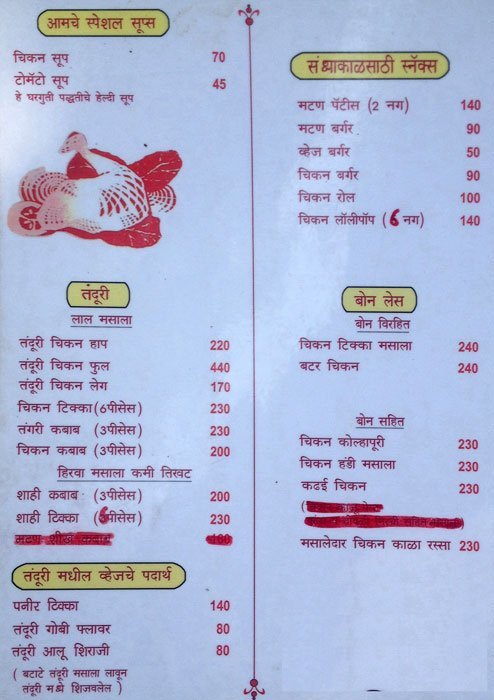 आमचे स्पेशल सूप्स
चिकन सूप 70
टोमॅटो सूप 45
हे घरगुती पद्धतीचे हेल्दी सूप
तंदूरी
लाल मसाला
तंदूरी चिकन हाप 220
तंदूरी चिकन फुल 440
तंदूरी चिकन लेग 170
चिकन टिक्का (6पीसेस) 230
तंगरी कबाब (3पीसेस) 230
चिकन कबाब (3पीसेस) 200
हिरवा मसाला कमी तिखट
शाही कबाब (3पीसेस) 200
शाही टिक्का (6पीसेस) 230
मटण शीख कबाब
तंदूरी मधील व्हेजचे पदार्थ
पनीर टिक्का 140
तंदूरी गोबी फ्लावर 80
तंदूरी आलू शिराजी 80
( बटाटे तंदूरी मसाला लावून
तंदूरी मध्ये शिजवलेल )
संध्याकाळसाठी स्नॅक्स
मटण पॅटीस (2 नग) 140
मटण बर्गर 90
व्हेज बर्गर 50
चिकन बर्गर 90
चिकन रोल 100
चिकन लॉलीपॉप (6 नग) 140
बोन लेस
बोन विरहित
चिकन टिक्का मसाला 240
बटर चिकन 240
बोन सहित
चिकन कोल्हापूरी 230
चिकन हंडी मसाला 230
कढई चिकन 230
मसालेदार चिकन काळा रस्सा 230